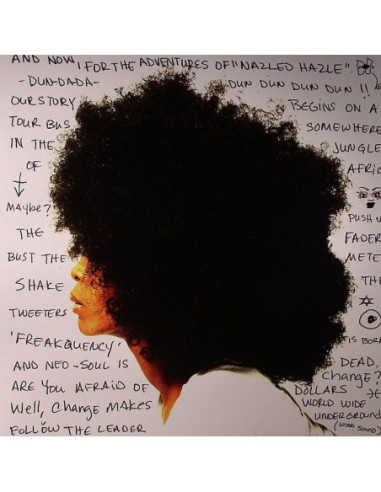 AND NOW, FOR THE ADVENTURES OF "NAZLED HAZLE".
-DUN-DADA- DUN DUN DUN DUN !!
OUR STORY BEGINS ON A
TOUR BUS SOMEWHERE
IN THE JUNGLE
OF AFRIC
MAYBE?
PUSH U
THE FADER
BUST THE METE
SHAKE THE
TWEETERS
'FREAKQUENCY' IS BORN
AND NEO-SOUL IS DEAD,
ARE YOU AFRAID OF Change?
Well, Change MAKES DOLLARS
WORLD WIDE
FOLLOW THE LEADER UNDERGROUND